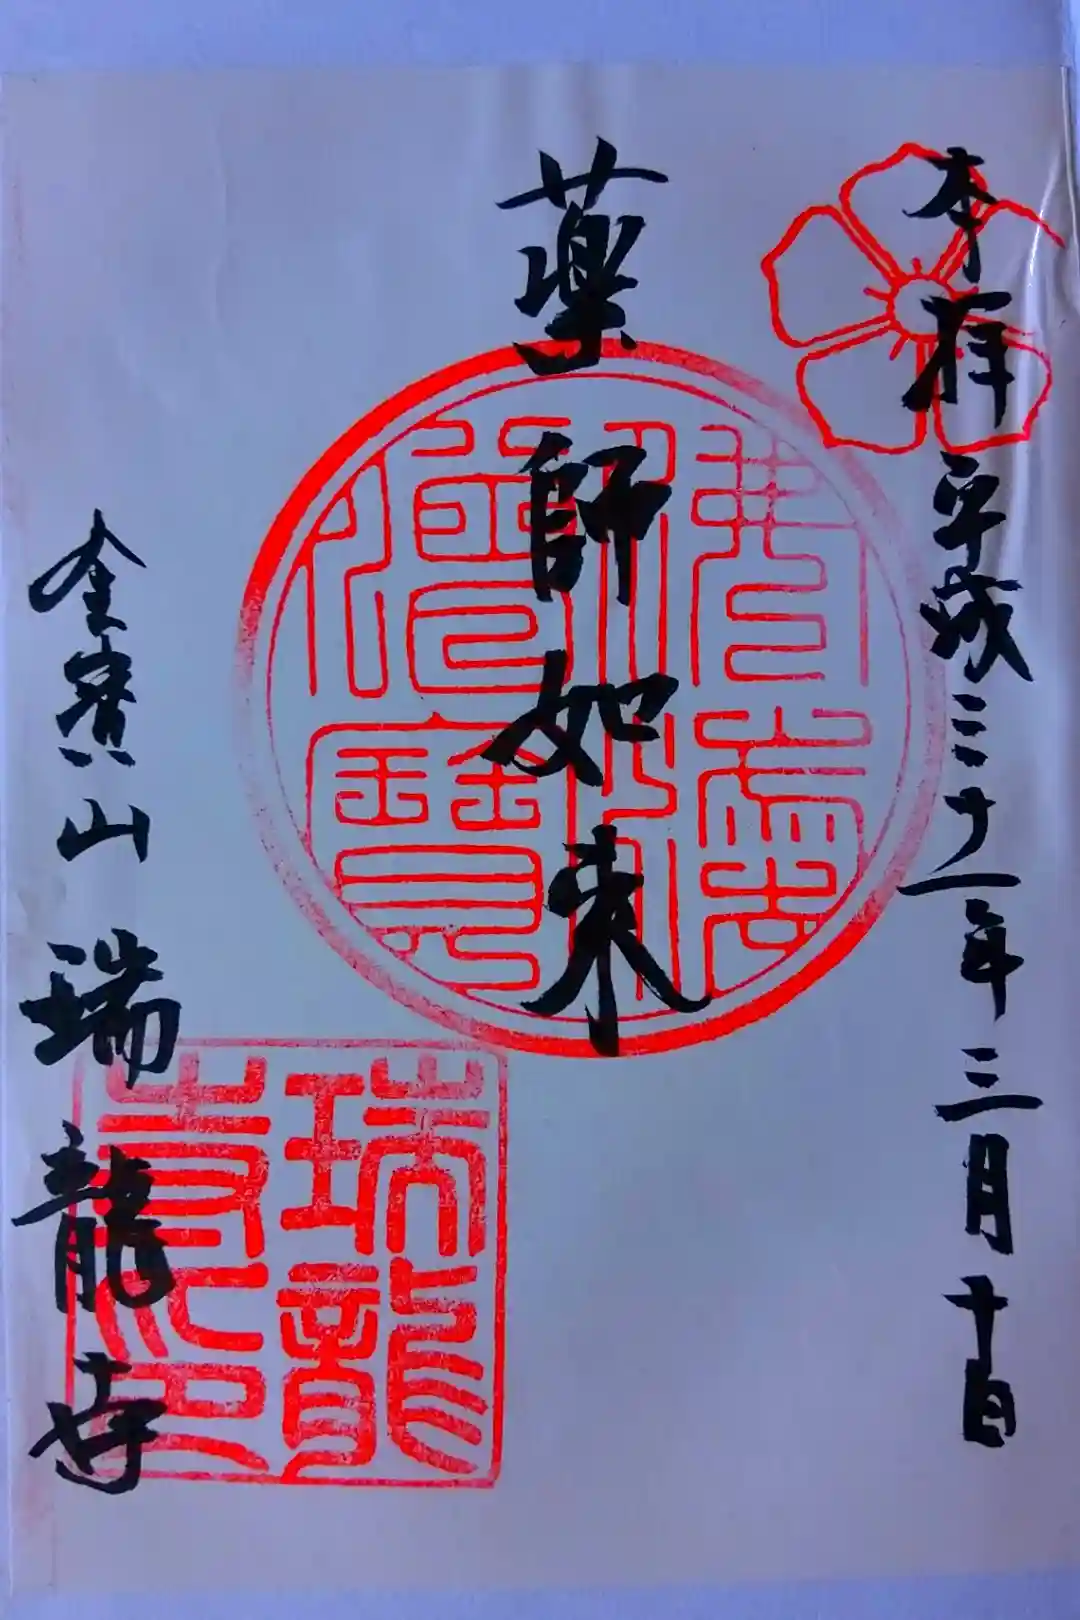 奉拝 平成三十一年三月十日
薬師如来
佛法僧寶
金寶山 瑞龍寺
瑞龍寺印